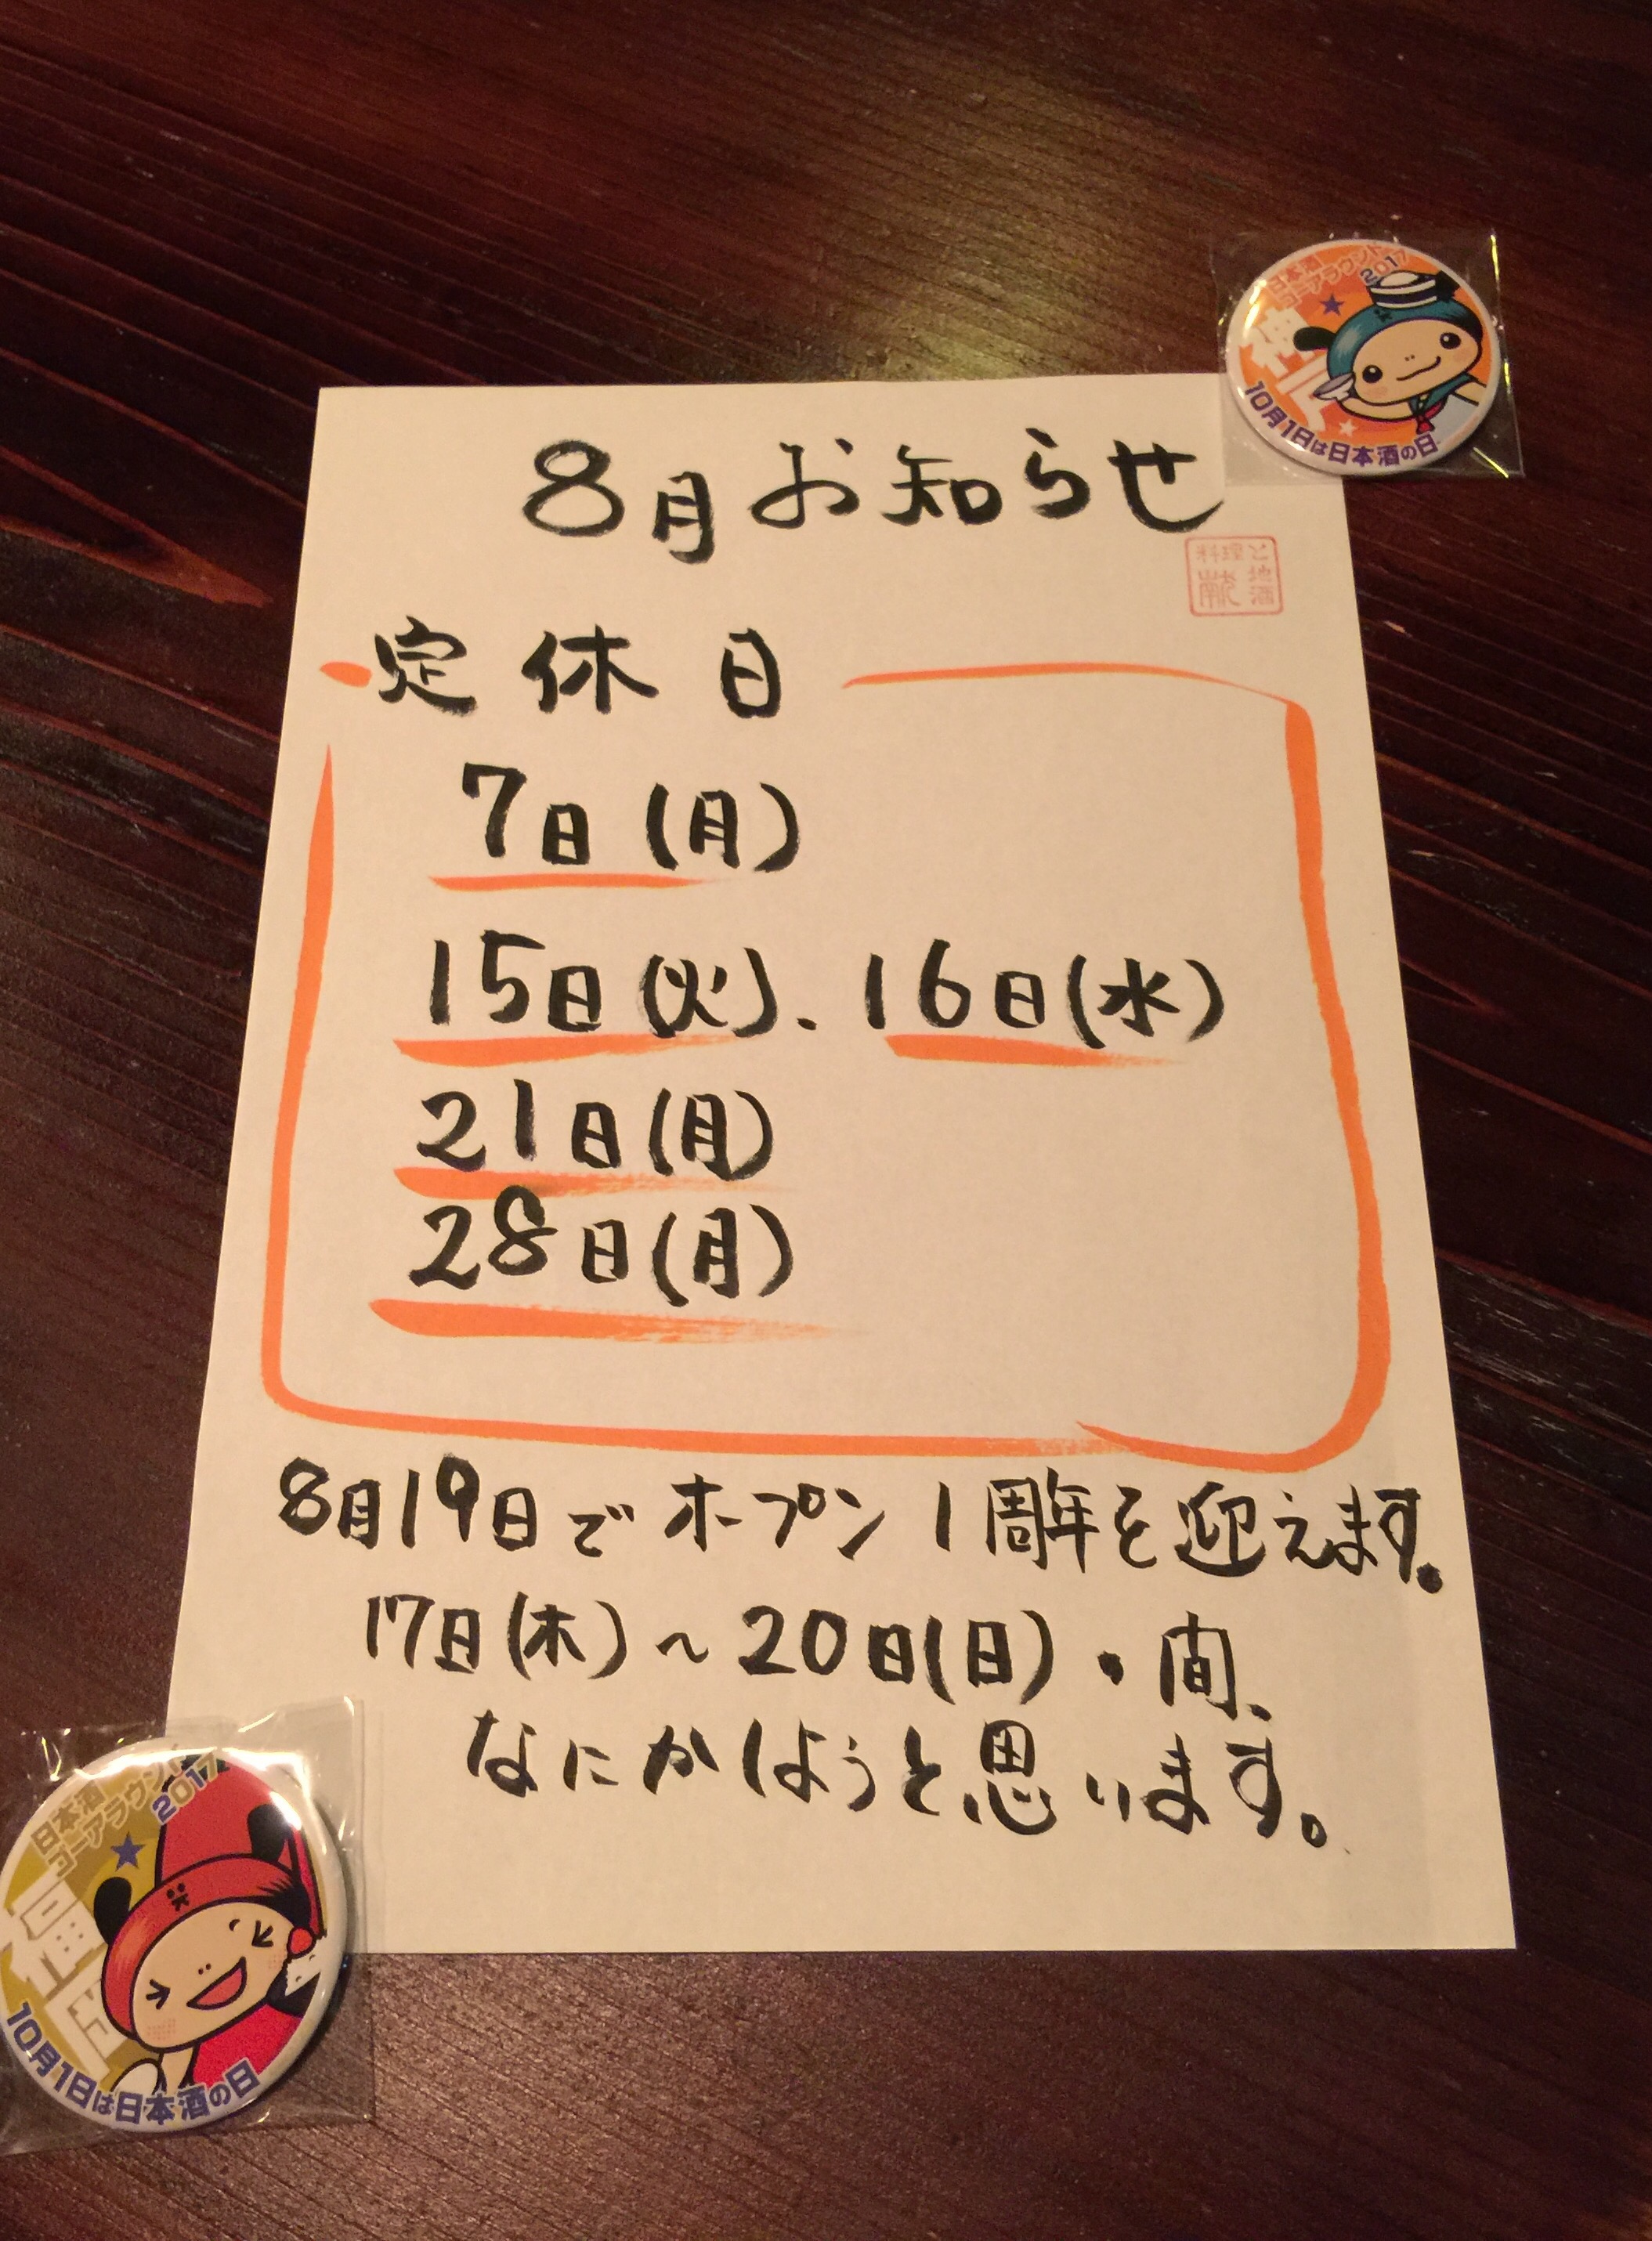 日本酒
ゴーアラウンド
2017
神戸
10月1日は日本酒の日
8月お知らせ
料理と
地酒
定休日
7日(月)
15日(火)、16日(水)
21日(月)
28日(月)
8月19日でオープン1周年を迎えます。
17日(木)~20日(日)・間、
なにかしようと思います。
日本酒
ゴーアラウンド
2017
福岡
10月1日は日本酒の日